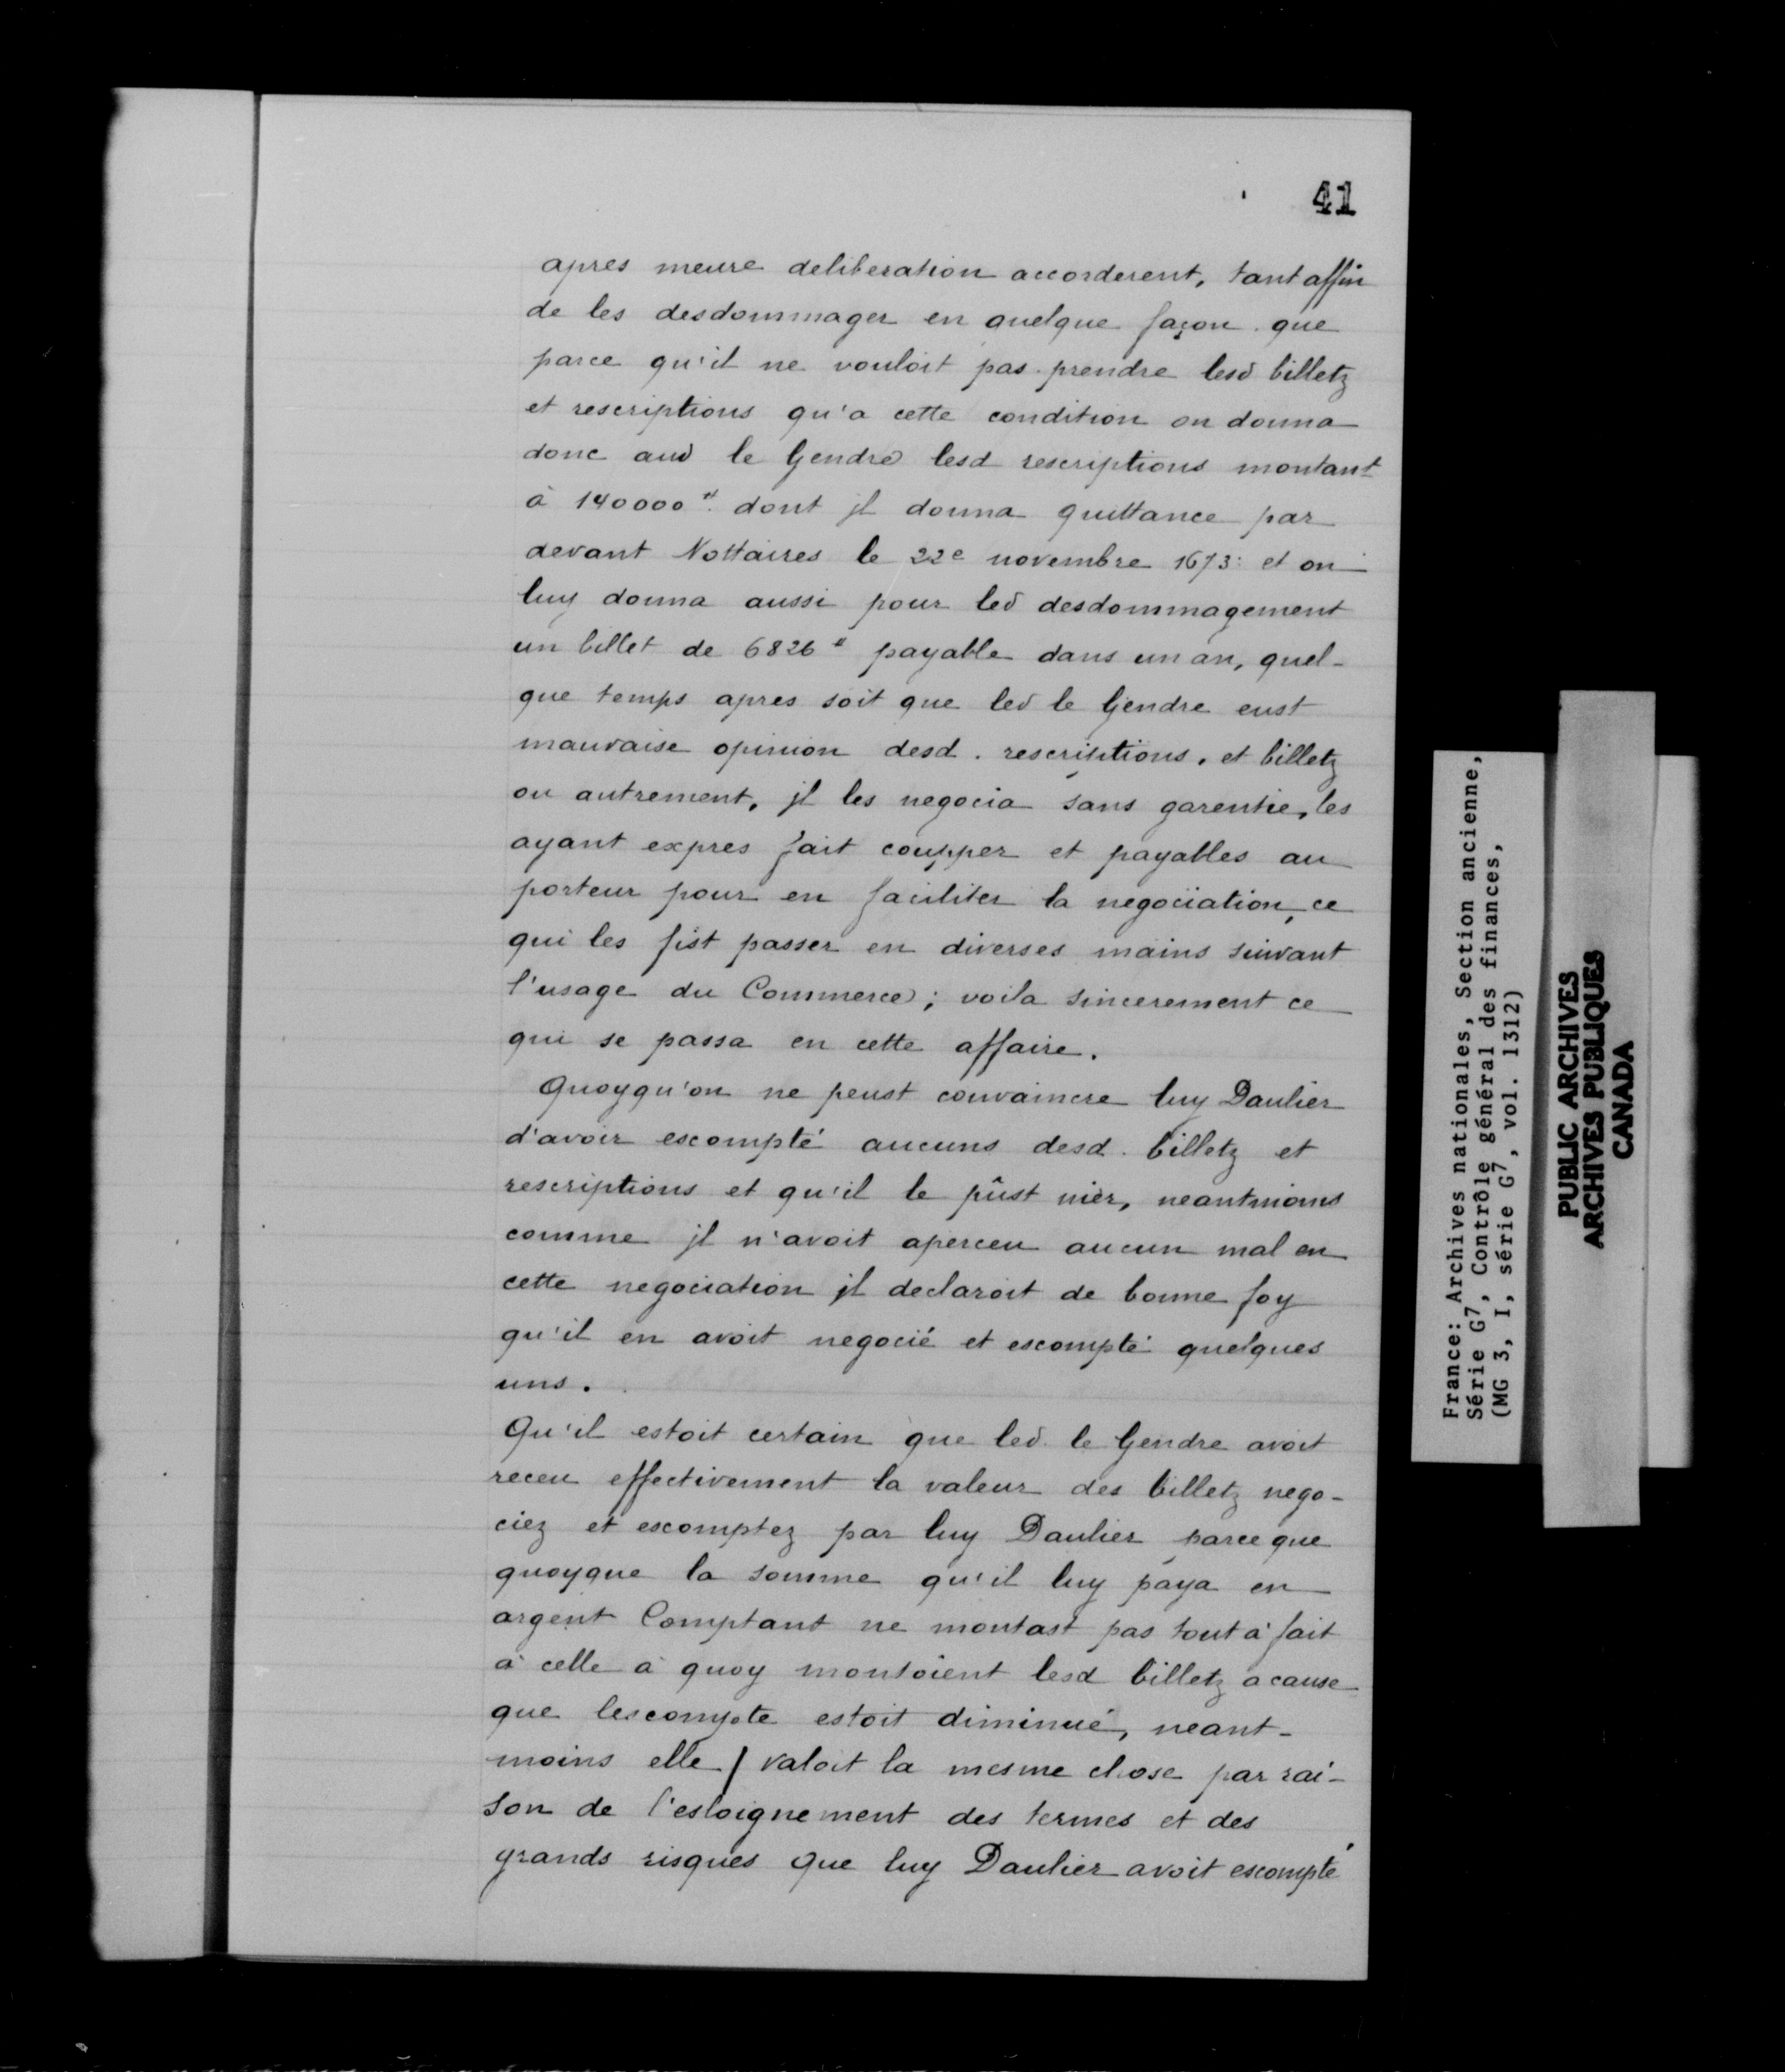 41
apres meure deliberation accorderent, tant affin
de les desdommager en quelque façon que
parce qu'il ne vouloit pas prendre lesd billetz
et rescriptions qu'a cette condition on donna
donc aud le Gendre lesd rescriptions montant
à 140000# dont jl donna quittance par
devant Nottaires le 22e novembre 1673: et on
luy donna aussi pour led desdommagement
un billet de 6826# payable dans un an, quel-
que temps apres soit que led le Gendre eust
mauvaise opinion desd. rescriptions, et billetz
ou autrement, jl les negocia sans garentie, les
ayant expres fait coupper et payables au
porteur pour en faciliter la negociation, ce
qui les fist passer en diverses mains suivant
l'usage du Commerce; voila sincerement ce
qui se passa en cette affaire.
Quoyqu'on ne peust convaincre luy Daulier
d'avoir escompté aucuns desd. billetz et
rescriptions et qu'il le pûst nier, neantmoins
comme jl n'avoit aperceu aucun mal en
cette negociation jl declaroit de bonne foy
qu'il en avoit negocié et escompté quelques
uns.
Qu'il estoit certain que led. le Gendre avoit
receu effectivement la valeur des billetz nego-
ciez et escomptez par luy Daulier parce que
quoyque la somme qu'il luy paya en
argent Comptant ne montast pas tout à fait
à celle à quoy montoient lesd billetz a cause
que lescompte estoit diminué, neant-
moins elle / valoit la mesme chose par rai-
son de l'esloignement des termes et des
grands risques que luy Daulier avoit escompté
France: Archives nationales, Section ancienne,
Série G7, Contrôle général des finances,
(MG 3, I, série G7, vol. 1312)
PUBLIC ARCHIVES
ARCHIVES PUBLIQUES
CANADA